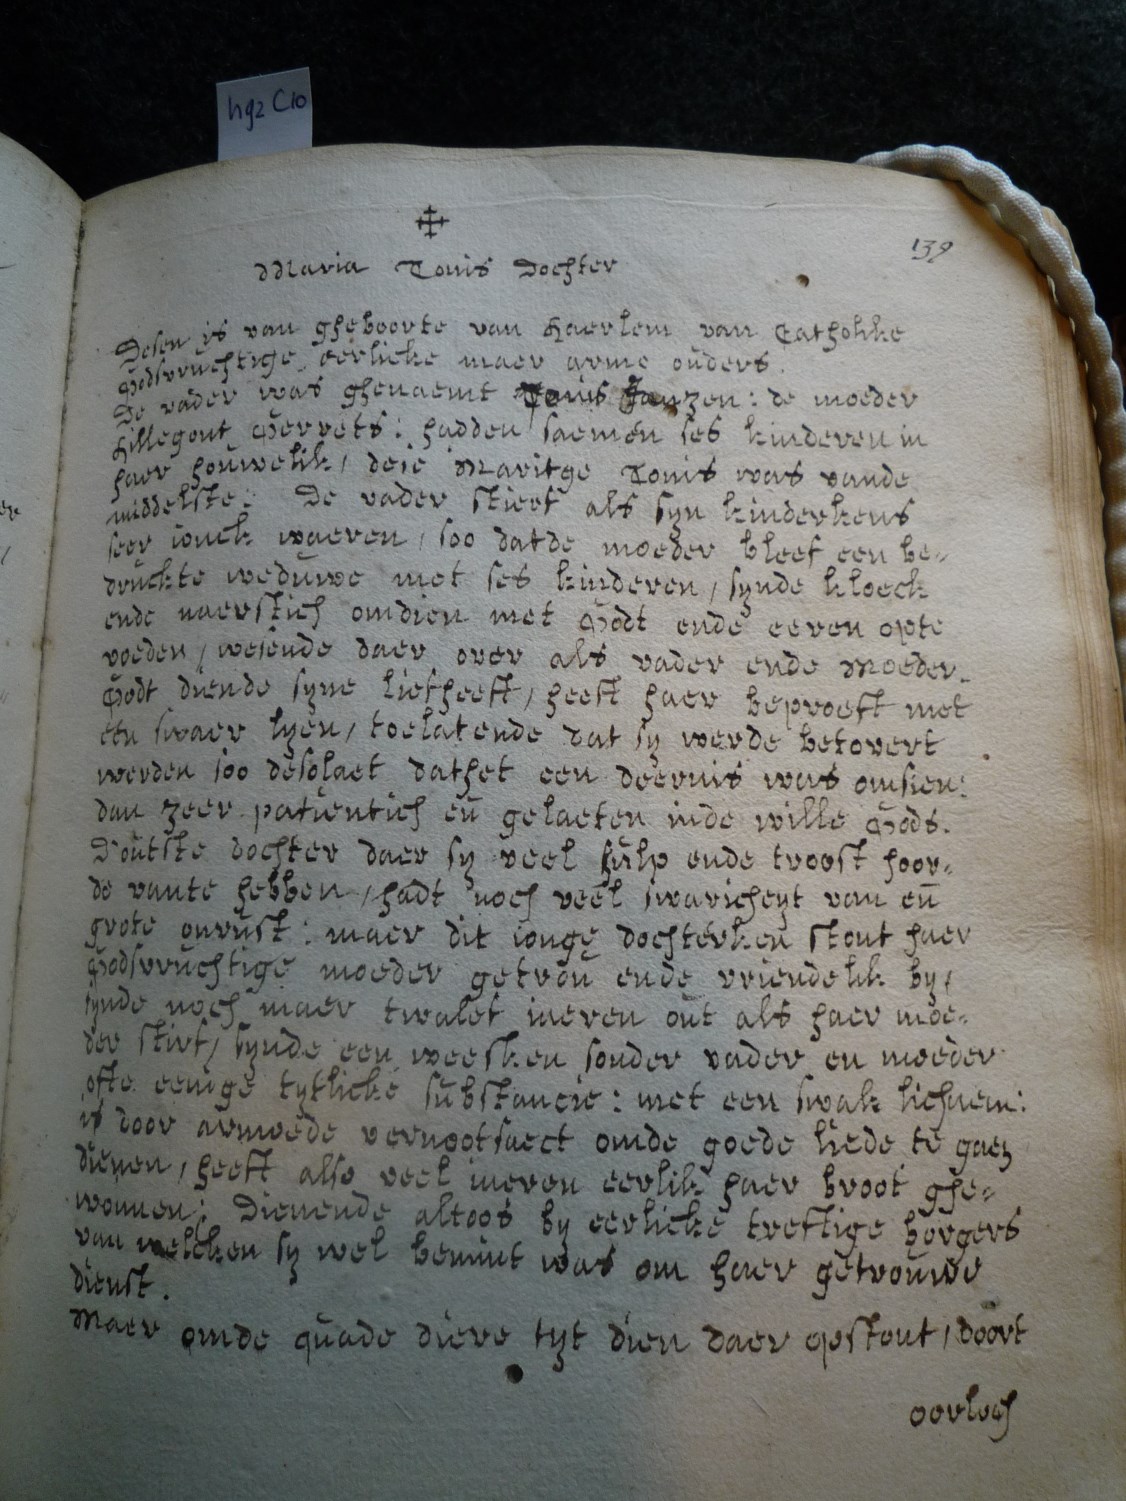 hg2 C10
139
Maria Tonis Dochter
Desen is van gheboorte van Haerlem van Catholike
Godsvruchtige eerlicke maer arme ouders.
De vader was ghenaemt Tonis Janzen: de moeder
Hillegont Gerrets: hadden saemen ses kinderen in
haer houwelik, dese Maritge Tonis was vande
middelste. De vader stierf als syn kinderkens
seer ionck waeren, soo datde moeder bleef een be-
druckte weduwe met ses kinderen, synde kloeck
ende naerstich omdien met Godt ende eeren opte
voeden, wesende daer over als vader ende Moeder.
Godt diende syne liefheeft, heeft haer beproeft met
een swaer lyen, toelatende dat sy werde betovert
werden soo desolaet dathet een deernis was omsien:
dan zeer patientich en̄ gelaeten inde wille Gods.
D'outste dochter daer sy veel hulp ende troost hoor-
de vante hebben, hadt noch veel swaricheyt van en̄
grote onrust: maer dit ionge dochterken stont haer
Godsvruchtige moeder getrou ende vriendelik by,
synde noch maer twalef iaeren out als haer moe-
der stirf, synde een weesken sonder vader en moeder
ofte eenige tytlicke substancie: met een swak lichaem:
is door armoede vernootsaect omde goede liede te gaen
dienen, heeft also veel iaeren eerlik haer broot ghe-
wonnen: Dienende altoos by eerlicke treftige borgers
van welcken sy wel bemint was om haer getrouwe
dienst.
Maer omde quade diere tyt dien daer opstont, doort
oorloch